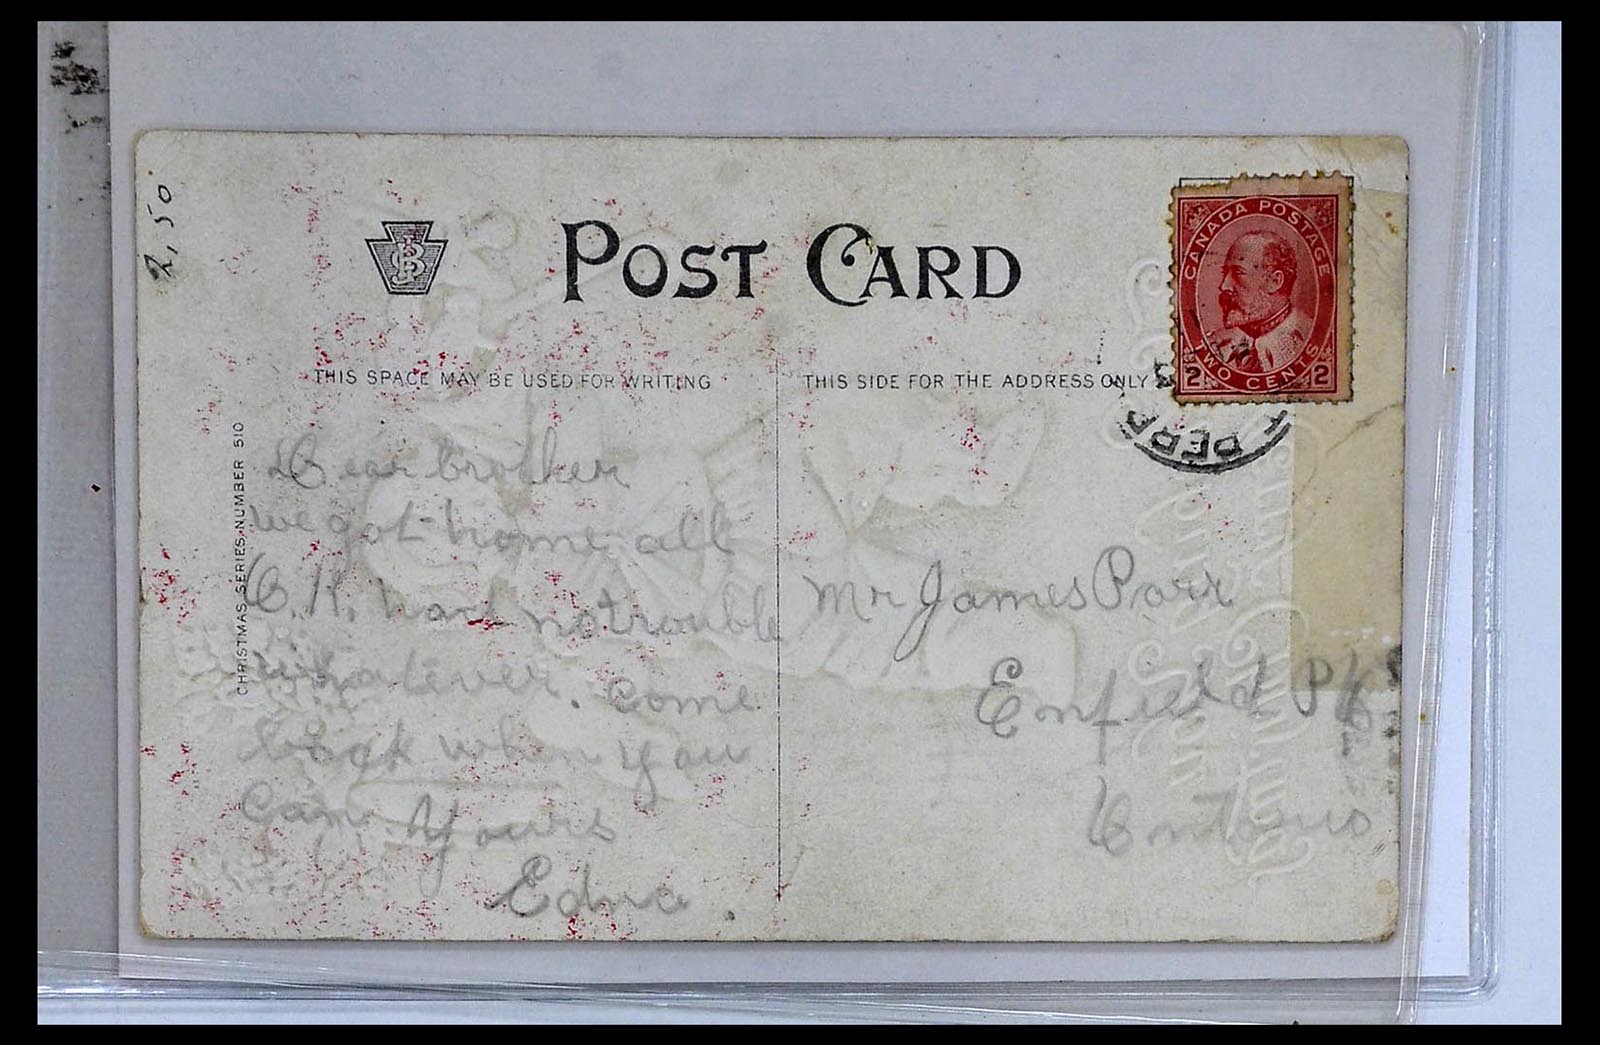 2,50
POST CARD
CANADA POSTAGE
2 TWO CENTS 2
THIS SPACE MAY BE USED FOR WRITING
THIS SIDE FOR THE ADDRESS ONLY
CHRISTMAS SERIES NUMBER 510
Dear brother
we got home all
O.K. had no trouble
whatever. Come
back when you
can. Yours
Edna.
Mr James Parr
Enfield
Ontario